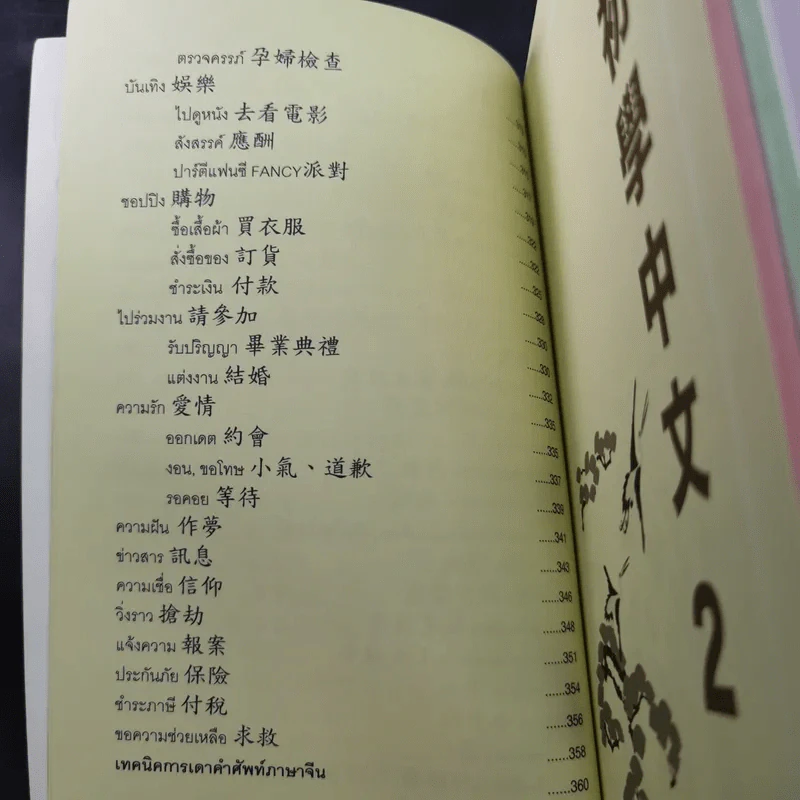 ตรวจครรภ์ 孕婦檢查
บันเทิง 娛樂
ไปดูหนัง 去看電影
สังสรรค์ 應酬
ปาร์ตีแฟนซี FANCY派對
ชอปปิง 購物
ซื้อเสื้อผ้า 買衣服
สั่งซื้อของ 訂貨
ชำระเงิน 付款
ไปร่วมงาน 請參加
รับปริญญา 畢業典禮
แต่งงาน 結婚
ความรัก 愛情
ออกเดต 約會
งอน, ขอโทษ 小氣、道歉
รอคอย 等待
ความฝัน 作夢
ข่าวสาร 訊息
ความเชื่อ 信仰
วิ่งราว 搶劫
แจ้งความ 報案
ประกันภัย 保險
ชำระภาษี 付稅
ขอความช่วยเหลือ 求救
เทคนิคการเดาคำศัพท์ภาษาจีน
......332
......335
......335
......337
......339
......341
......343
......346
......348
......351
......354
......356
......358
......360
初學中文 2